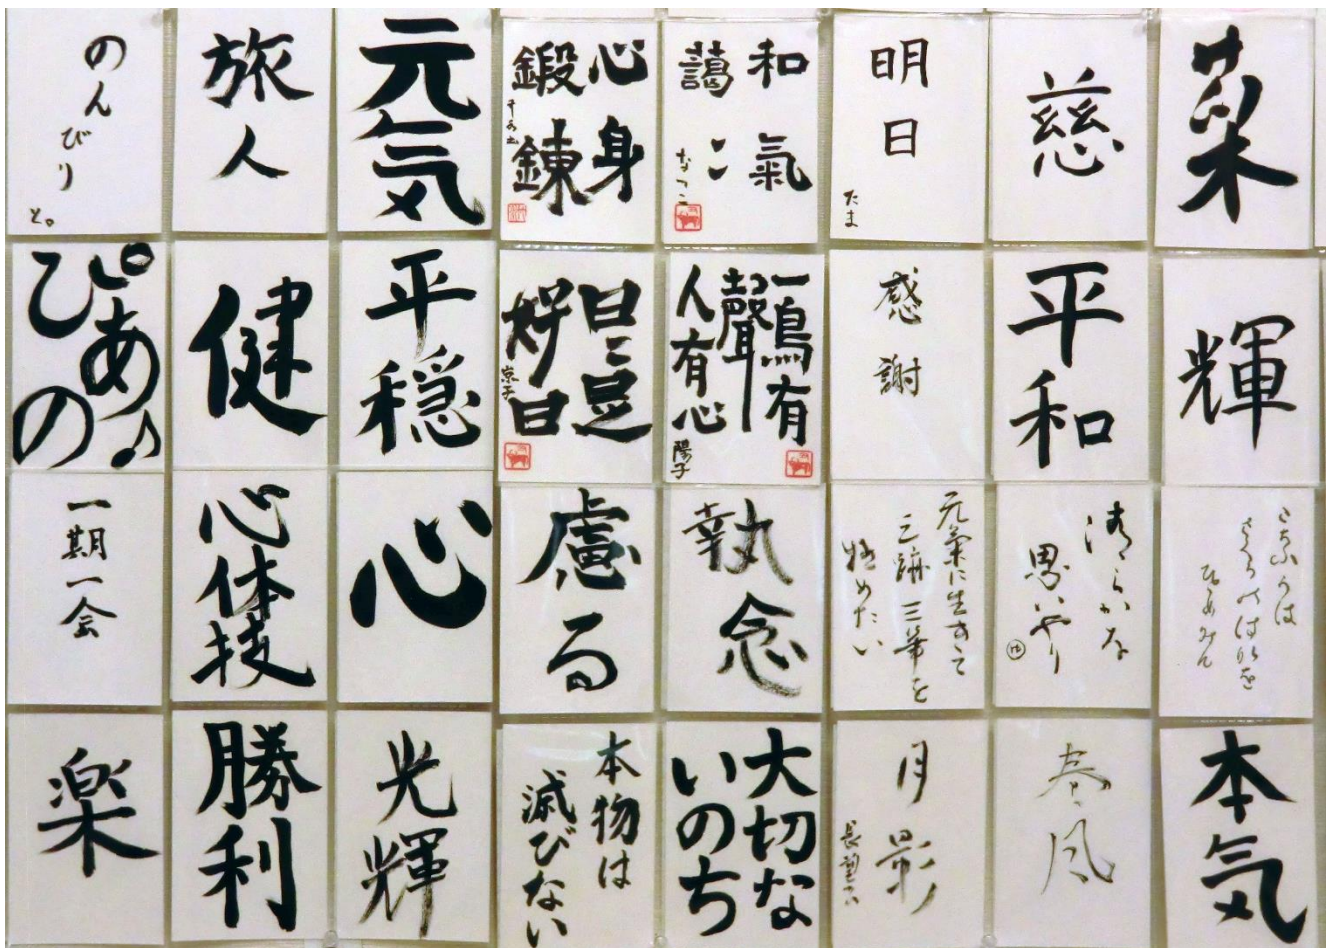 のんびり
と。
旅人
元気
心身
鍛錬
和氣
藹々
なつこ
明日
たま
慈
菜
ぴあの♪
健
平穏
日々是
好日
京子
一鳥有
聲
人有心
陽子
感謝
平和
輝
一期一会
心体技
心
慮る
執念
元氣に生きて
三諦三筆を
極めたい
清らかな
思いやり
ゆ
楽
勝利
光輝
本物は
滅びない
大切な
いのち
月影
春風
本気